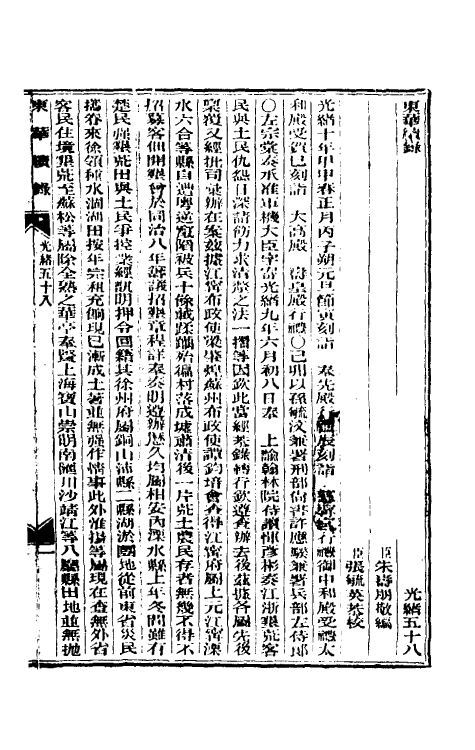 東華續錄
光緒五十八
臣朱壽朋敬編
臣張毓英恭校
光緒十年甲申春正月丙子朔元旦節寅刻詣 奉先殿行禮辰刻詣 行禮御中和殿受禮太
和殿受賀巳刻詣 大高殿 壽皇殿行禮〇己卯以孫毓汶兼署刑部尚書許應騤兼署兵部左侍郎
〇左宗棠奏承准軍機大臣字寄光緒九年六月初八日奉 上諭翰林院侍讀惲彥彬奏江浙墾荒客
民與土民仇怨日深請飭力求清釐之法一摺等因欽此當經恭錄轉行欽遵查辦去後茲據各屬先後
稟覆又經批司彙辦在案茲據江甯布政使梁肇煌蘇州布政使譚鈞培會查得江甯府屬上元江甯溧
水六合等縣自遭粵逆竄陷被兵十餘載蹂躪殆徧村落成墟肅清後一片荒土農民存者無幾不得不
招募客佃開墾曾於同治八年籌議招墾章程詳奏奏明遵辦歷久均屬相安內溧水縣上年冬間雖有
楚民強墾荒田與土民爭控業經訊明押令回籍其徐州府屬銅山沛縣二縣湖淤團地從前東省災民
攜眷來徐領種水涸湖田按年完租充餉現已漸成土著並無強作情事此外淮揚等屬現在查無外省
客民住境墾荒至蘇松等屬除全熟之華亭奉賢上海寶山崇明南匯川沙靖江等八廳縣田地並無拋
東華續錄
光緒五十八